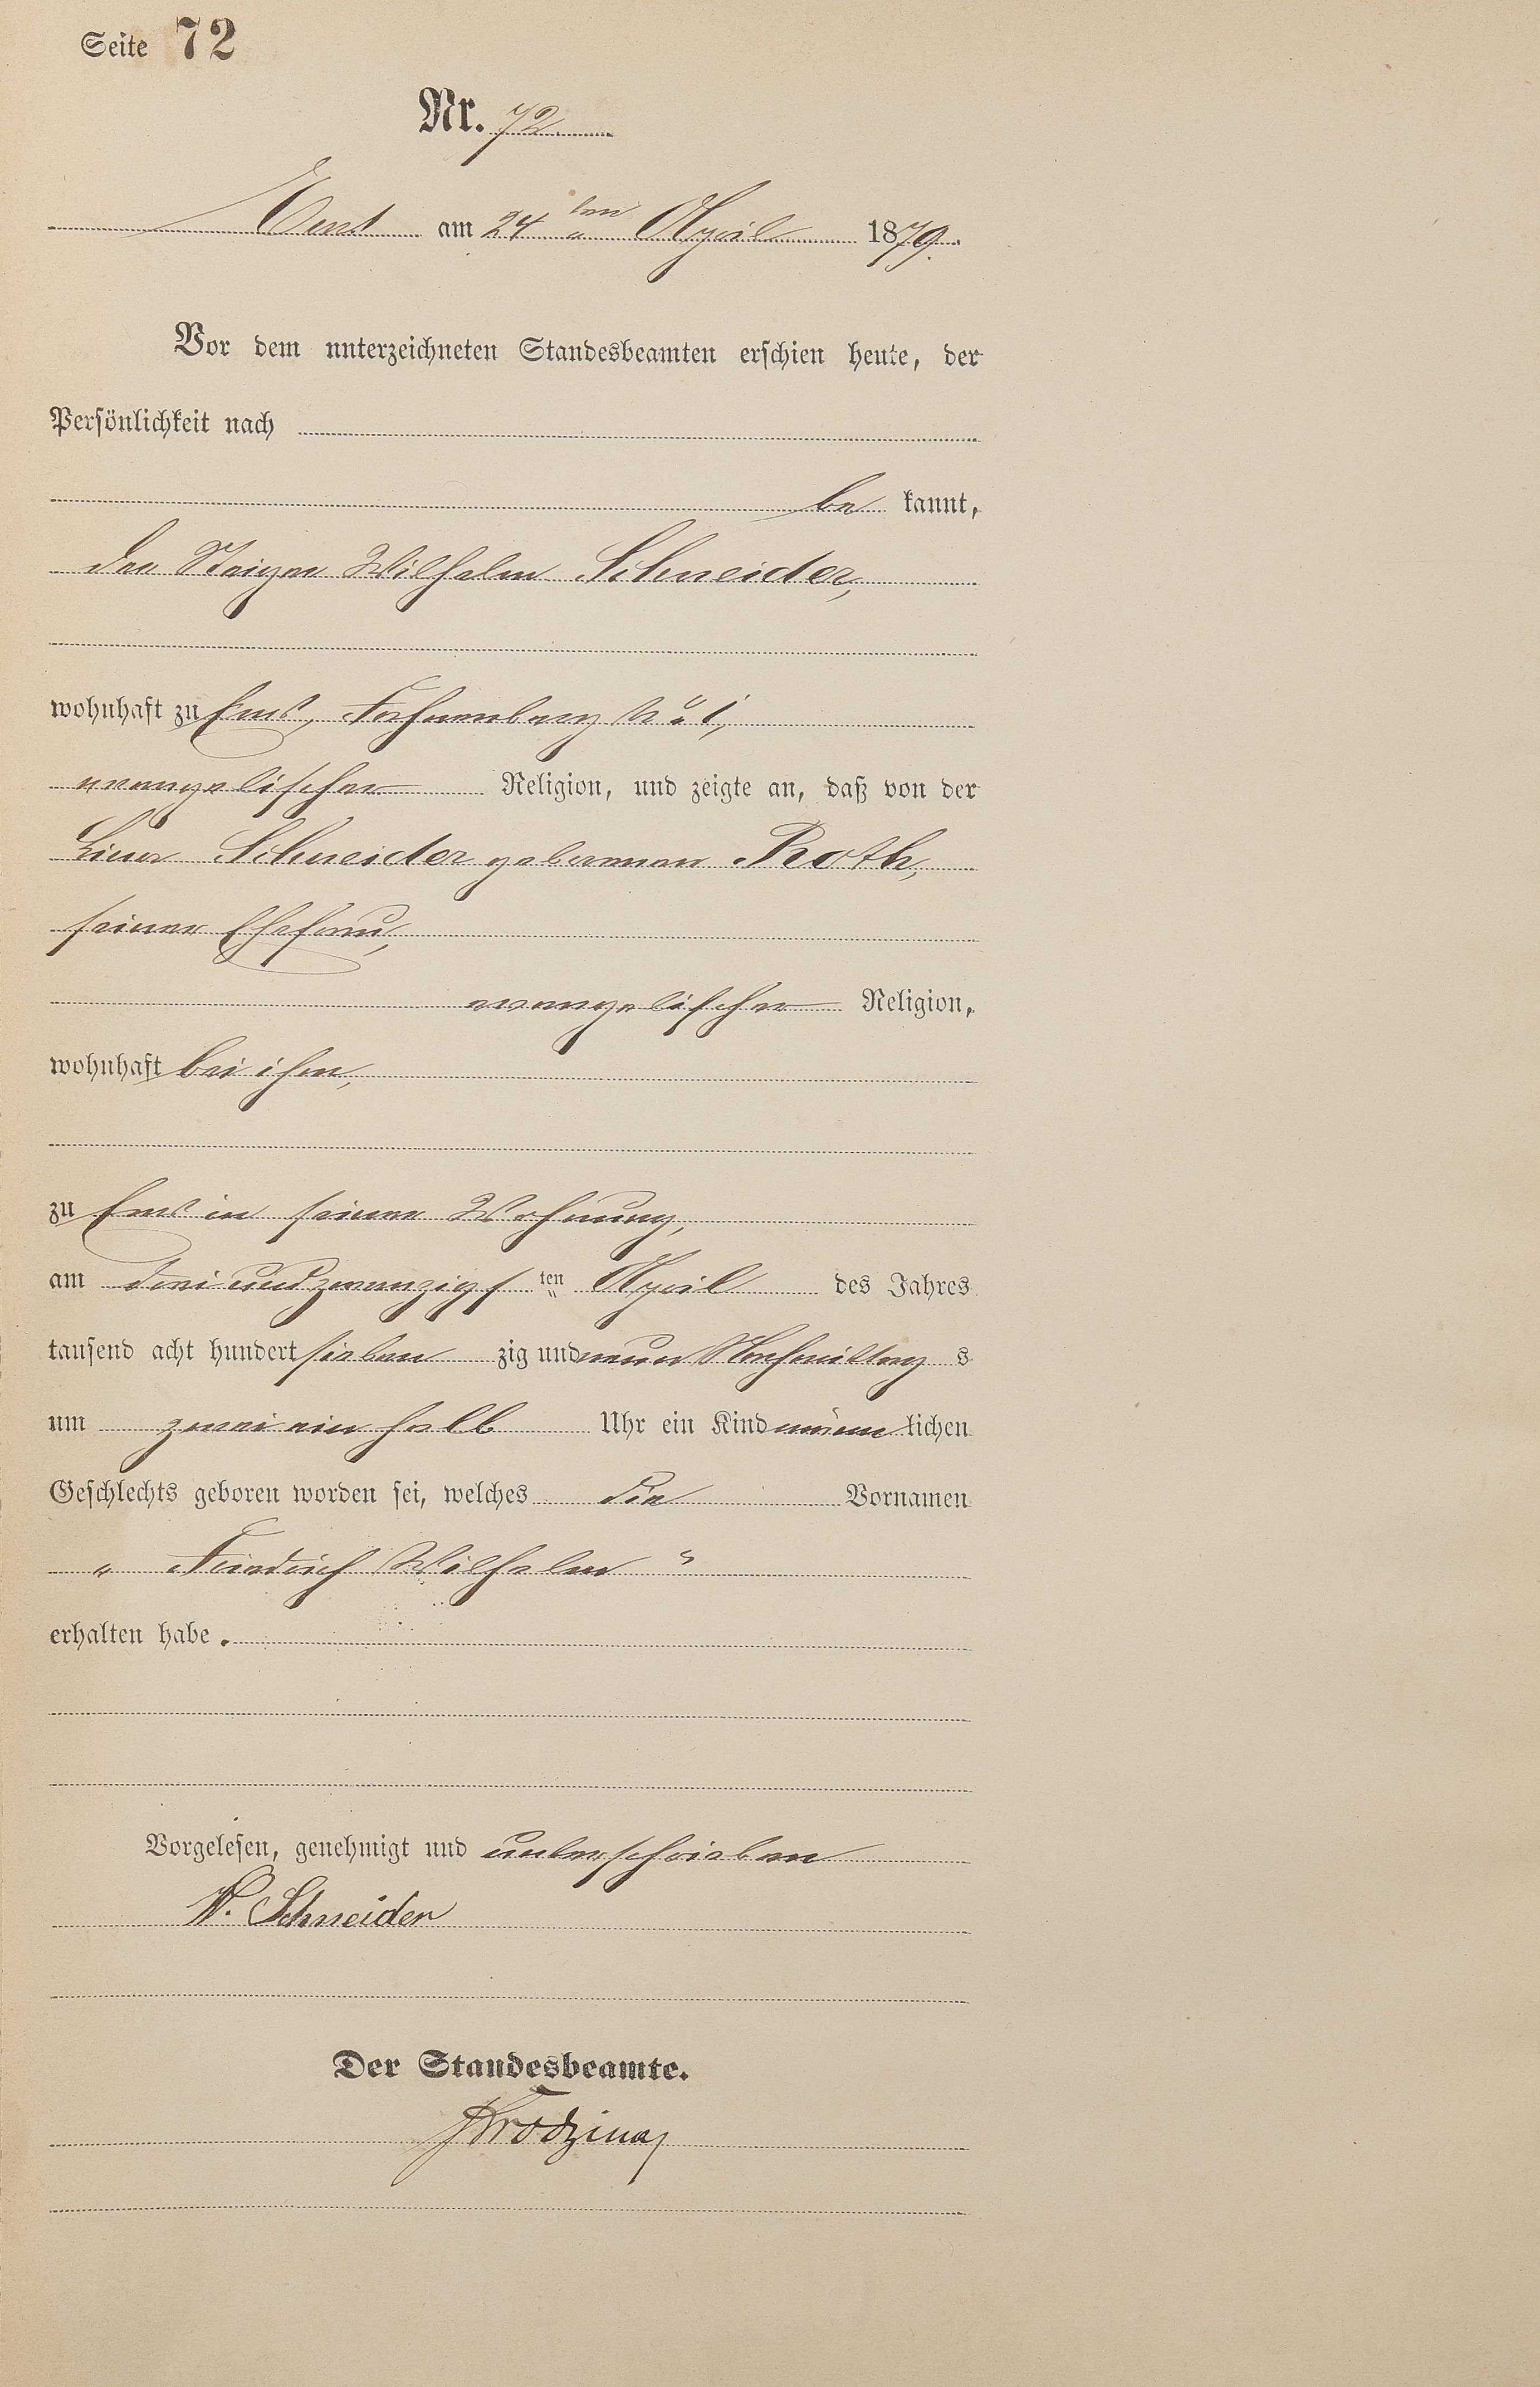 Seite 72
Nr. 72
Ems am 24ten April 1879.
Vor dem unterzeichneten Standesbeamten erschien heute, der
Persönlichkeit nach
be kannt,
der Steiger Wilhelm Schneider,
wohnhaft zu Ems, No 1,
evangelischer Religion, und zeigte an, daß von der
Lina Schneider geborenen Roth,
seiner Ehefrau,
evangelischer Religion,
wohnhaft bei ihm,
zu Ems in seiner Wohnung,
am dreiundzwanzigs ten April des Jahres
tausend acht hundert sieben zig und neun Nachmittag s
um zwei ein halb Uhr ein Kind männ lichen
Geschlechts geboren worden sei, welches die Vornamen
„ Friedrich Wilhelm “
erhalten habe.
Vorgelesen, genehmigt und unterschrieben
W. Schneider
Der Standesbeamte.